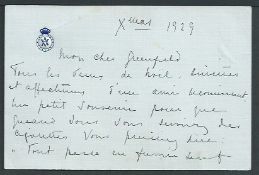 Xmas 1929
Mon cher Greenfield
Tous les vœux de Noel, sincères
et affectueux d'un ami reconnaissant
un petit souvenir pour que
quand vous vous servirez des
cigarettes vous puissiez dire
"Tout passe en fumée sauf